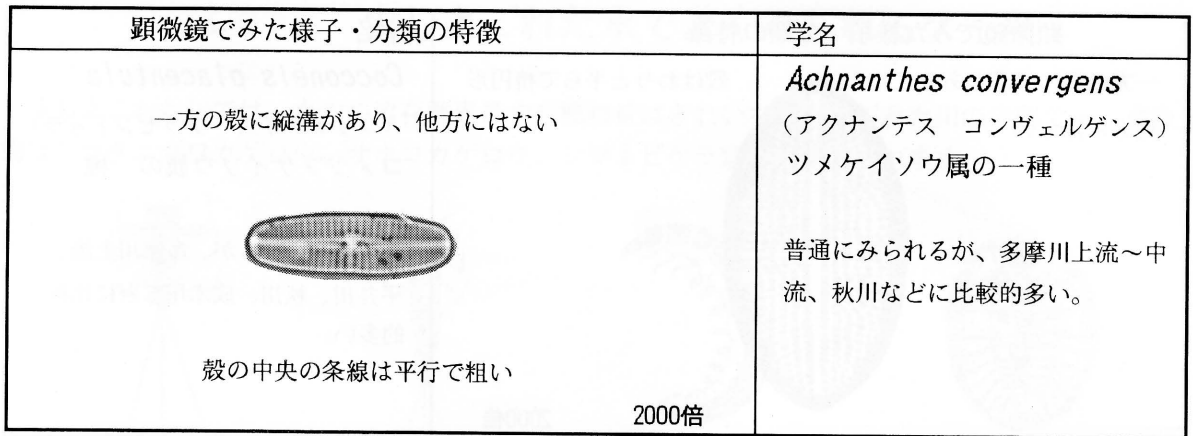 顕微鏡でみた様子・分類の特徴
学名
一方の殻に縦溝があり、他方にはない
殻の中央の条線は平行で粗い
2000倍
Achnanthes convergens
（アクナンテス　コンヴェルゲンス）
ツメケイソウ属の一種
普通にみられるが、多摩川上流～中
流、秋川などに比較的多い。